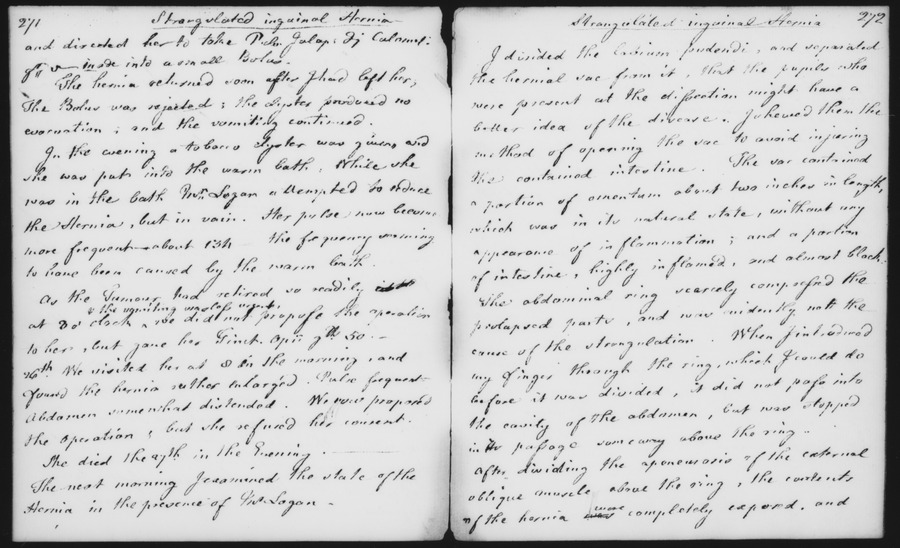 271 Strangulated inguinal Hernia
and directed her to take Pulv. Jalap. Calomel:
made into a small Bolus.
The hernia returned soon after I had left her,
The Bolus was rejected; the Clyster produced no
evacuation; and the vomiting continued.
In the evening a tobacco Clyster was given and
she was put into the warm bath. While she
was in the bath Logan attempted to reduce
the Hernia, but in vain. Her pulse now became
more frequent about 134 the frequency seeming
to have been caused by the warm bath.
As the Tumour had retired so readily
& the vomiting was less urgent,
at 3 o'clock we did not propose the operation
to her, but gave her Tinct. Opii gtt 50.
26th We visited her at 8 in the morning, and
found the hernia rather enlarg'd. Pulse frequent
Abdomen somewhat distended. We now proposed
the Operation, but she refused her consent.
She died the 27th in the Evening.
The next morning I examined the state of the
Hernia in the presence of Mr Logan.
Strangulated inguinal Hernia 272
I divided the pudendi, and separated
the hernial sac from it, that the pupils who
were present at the dissection might have a
better idea of the disease. I shewed them the
method of opening the sac to avoid injuring
the contained intestine. The sac contained
a portion of omentum about two inches in length,
which was in its natural state, without any
appearance of inflammation; and a portion
of intestine, highly inflamed, and almost black.
The abdominal ring scarcely compressed the
prolapsed parts, and was evidently not the
cause of the strangulation. When I introduced
my finger through the ring, which I could do
before it was divided, it did not pass into
the cavity of the abdomen, but was stopped
in its passage some way above the ring.
After dividing the aponeurosis of the external
oblique muscle above the ring, the contents
of the hernia were completely exposed, and